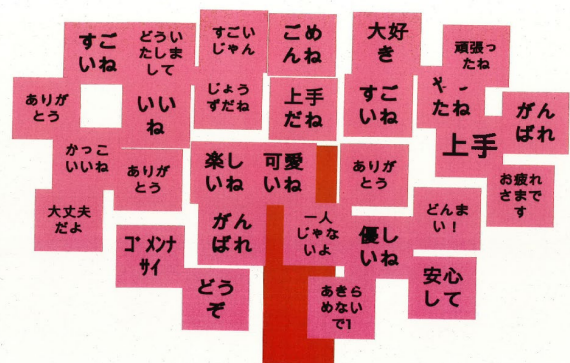 すご
いね
どうい
たしま
して
すごい
じゃん
ごめ
んね
大好
き
頑張っ
たね
ありが
とう
いい
ね
じょう
ずだね
上手
だね
すご
いね
やっ
たね
がん
ばれ
上手
かっこ
いいね
ありが
とう
楽し
いね
可愛
いね
ありが
とう
お疲れ
さまで
す
大丈夫
だよ
がん
ばれ
一人
じゃな
いよ
優し
いね
どんま
い！
ゴメンナ
サイ
どう
ぞ
あきら
めない
で1
安心
して